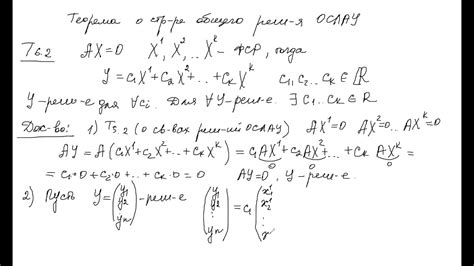 Теорема о стр-ре общего реш-я ОСЛАУ
T6.2 AX=0 X¹, X², .. X^k - ФСР, тогда
Y = c₁X¹ + c₂X² + .. + c_k X^k c₁, c₂.. c_k ∈ ℝ
Y-реш-е для ∀cᵢ. Для ∀Y-реш-е. ∃ c₁.. c_k ∈ ℝ
Док-во: 1) T5.2 (о св-вах реш-ий ОСЛАУ) AX¹=0 AX²=0.. AX^k=0
AY = A(c₁X¹ + c₂X² + .. + c_k X^k) = c₁AX¹ + c₂AX² + .. + c_k AX^k =
0 0 0
= c₁·0 + c₂·0 + .. + c_k·0 = 0 AY=0, Y-реш-е.
2) Пусть Y = (y₁ y₂ ⋮ yₙ) - реш-е (y₁ y₂ ⋮ yₙ) = c₁ (x₁¹ x₂¹ ⋮